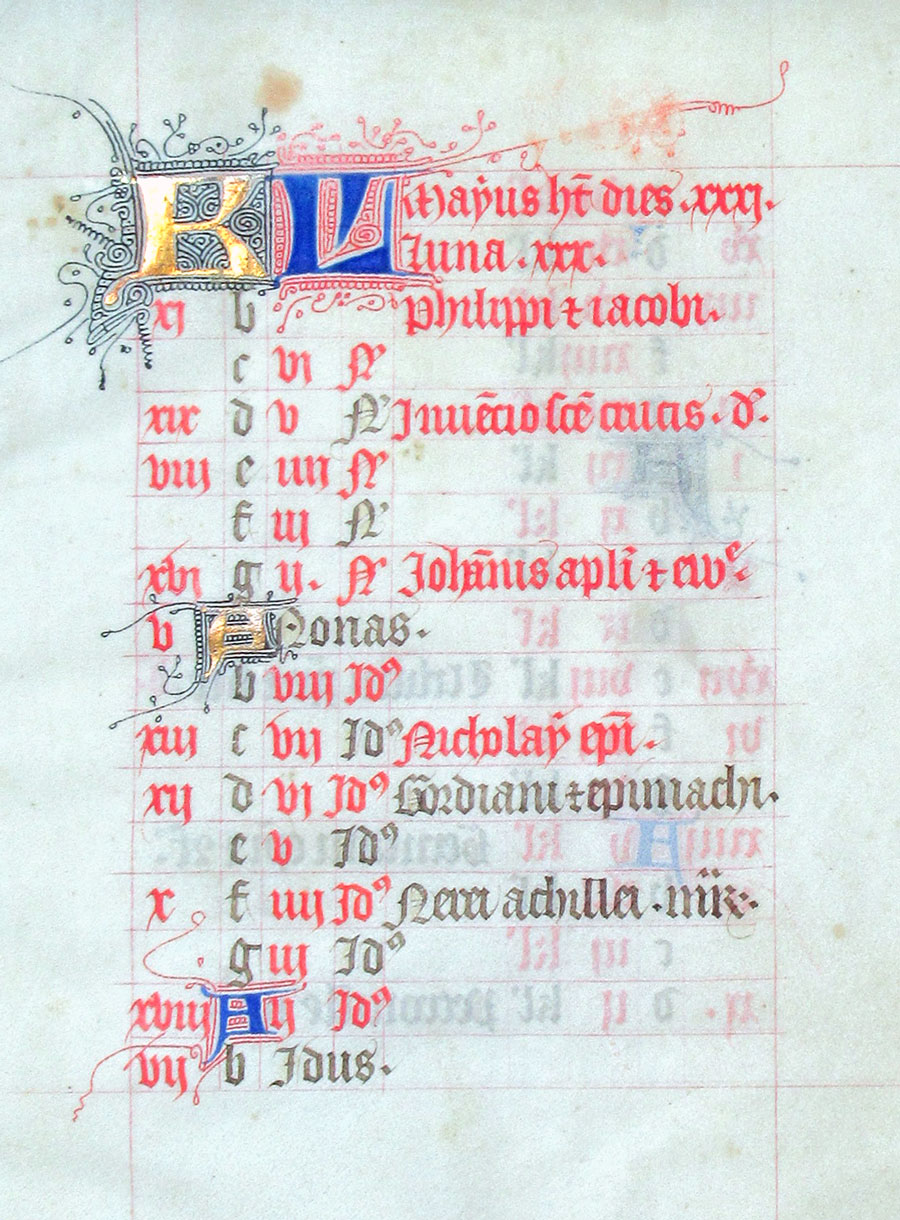 KL Maÿus ht̄ dies .xxxj.
luna .xxx.
xj b philippi ⁊ iacobi.
c vj N̾
xix d v N̾ Inuēcio sc̄e crucis . d̾.
viij e iiij N̾
f iij N̾
xvj g ij. N̾ Joha̅nis apl̄i ⁊ ew̾.
v A Nonas.
b viij Idꝰ
xiij c vij Idꝰ Nicholaÿ ep̄i .
xij d vj Idꝰ Gordiani ⁊ epimachi.
e v Idꝰ
x f iiij Idꝰ Nerei achillei .
g iij Idꝰ
xviij A ij Idꝰ
vij b Idus.